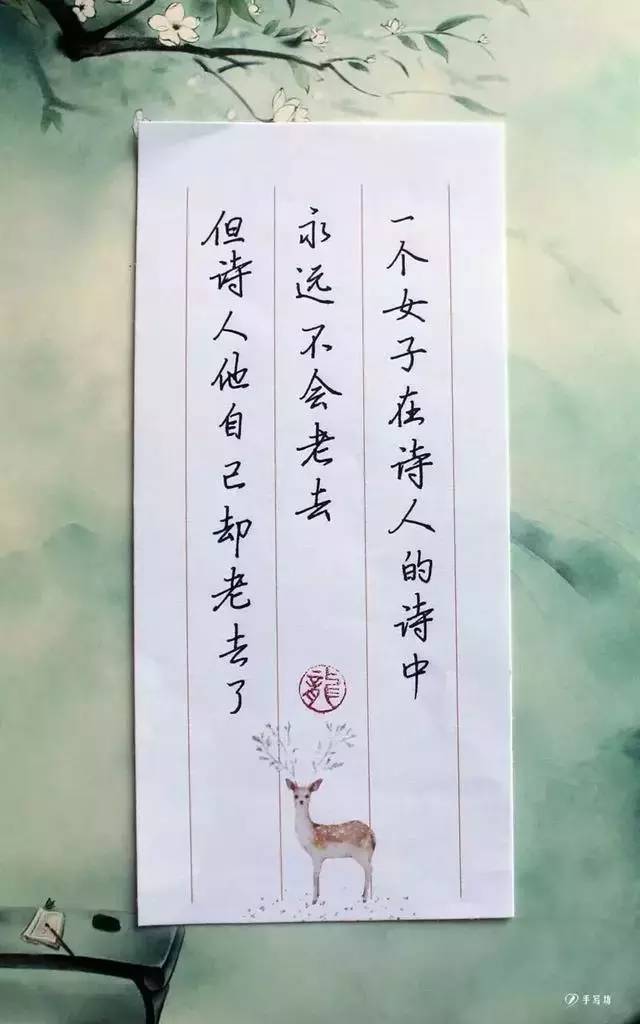 一个女子在诗人的诗中
永远不会老去
但诗人他自己却老去了
龍
手写坊